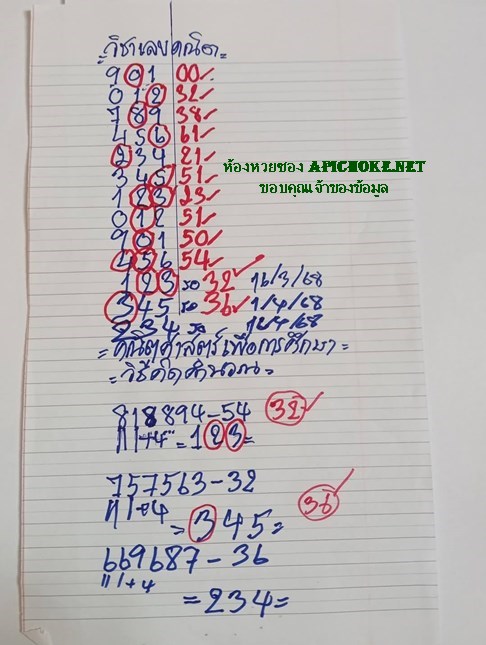 =วิชาเลขคณิต=
901 00✓
012 32✓
789 38✓
456 61✓
234 21✓
345 51✓
123 23✓
012 51✓
901 50✓
456 54✓
123 รอ 32✓ 16/3/68
345 รอ 36✓ 1/4/68
234 รอ 16/4/68
ห้องหวยซอง APICHOKE.NET
ขอบคุณเจ้าของข้อมูล
=คณิตศาสตร์เพื่อการศึกษา=
=วิธีคิดคำนวณ=
818894-54 32✓
+4 =123=
757563-32
+4 36✓
=345=
669687-36
+4
=234=